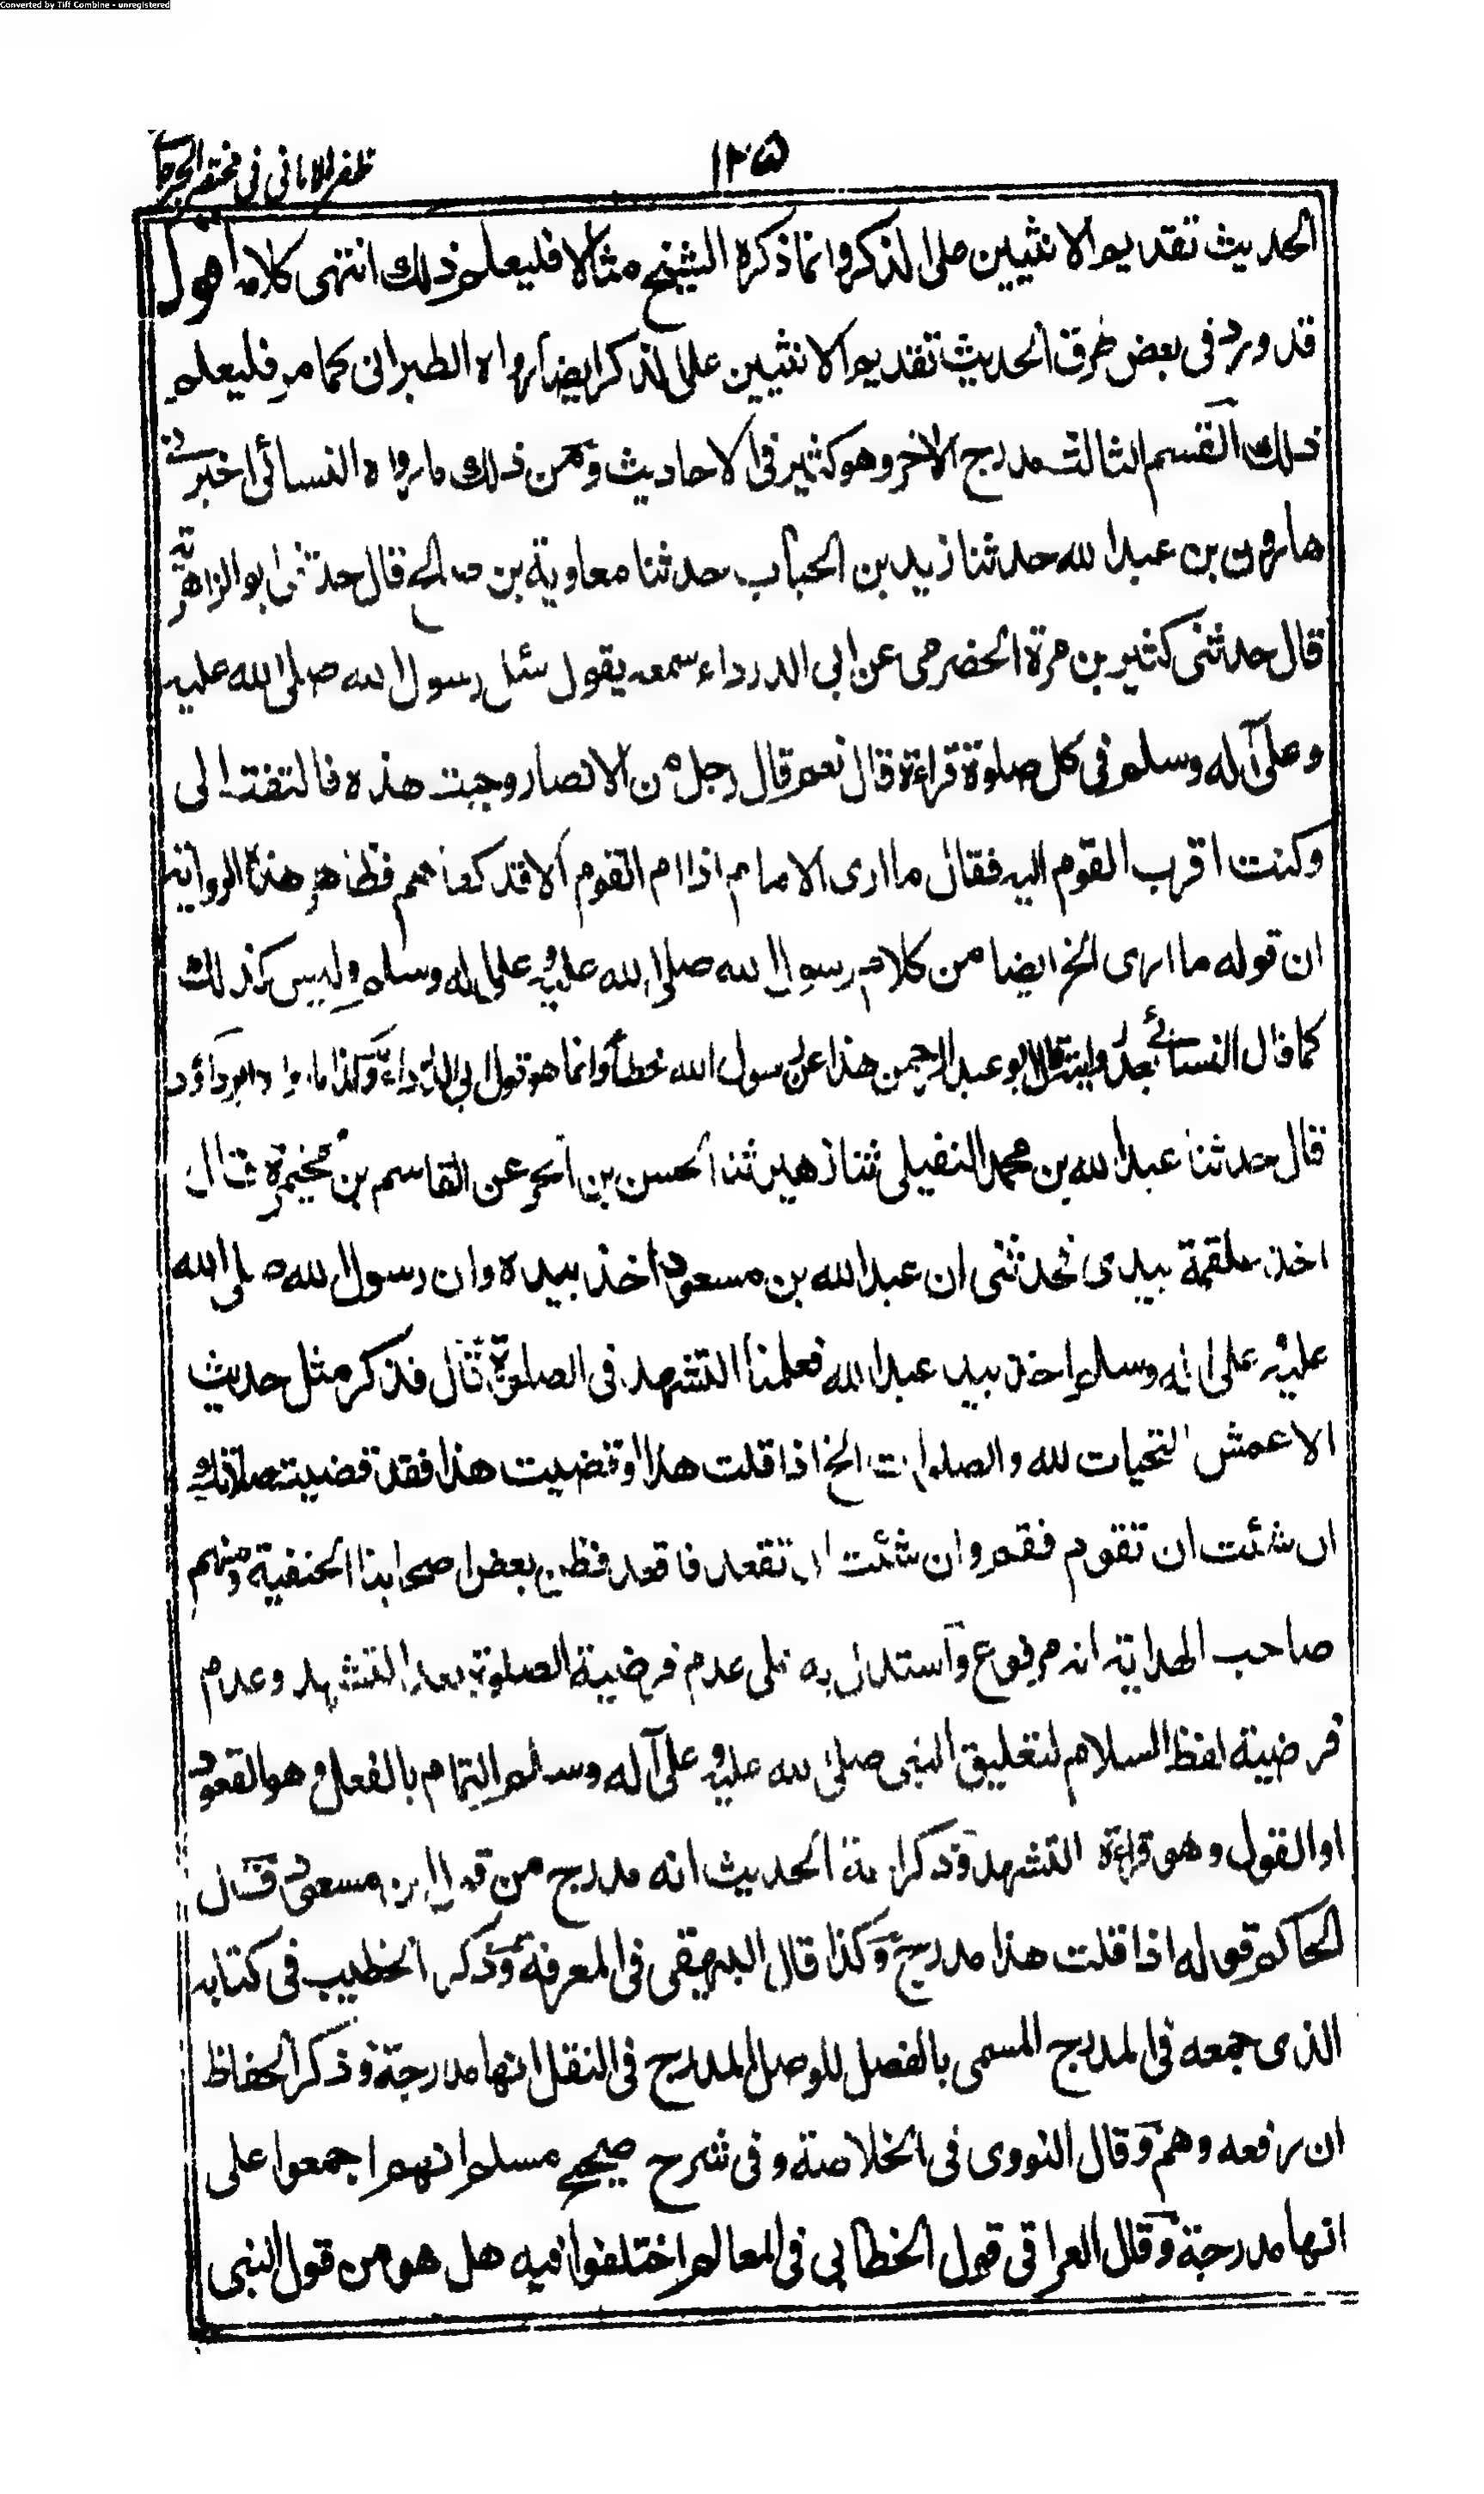 Converted by Tiff Combine - unregistered
١٢٥
ظفر الامانى فى مختصر الجرجانى
الحديث تقديم الانثيين على الذكر وانما ذكره الشيخ مثالا فليعلم ذلك انتهى كلامه اقول
قد ورد فى بعض طرق الحديث تقديم الانثيين على الذكر ايضا رواه الطبرانى كما مر فليعلم
ذلك القسم الثالث مدرج الاخر وهو كثير فى الاحاديث ومن ذلك ما رواه النسائى اخبرنے
هارون بن عبد الله حدثنا زيد بن الحباب حدثنا معاوية بن صالح قال حدثنى ابو الزاهرية
قال حدثنى كثير بن مرة الحضرمى عن ابى الدرداء سمعه يقول سئل رسول الله صلى الله عليه
وعلى آله وسلم فى كل صلوة قراءة قال نعم قال رجل من الانصار وجبت هذه فالتفت الى
وكنت اقرب القوم اليه فقال ما ارى الامام اذا ام القوم الا قد كفاهم فظاهر هذه الرواية
ان قوله ما ارى الخ ايضا من كلام رسول الله صلى الله عليه وعلى آله وسلم وليس كذلك
كما قال النسائے بعد روايته قال ابو عبد الرحمن هذا عن رسول الله خطأ وانما هو قول ابى الدرداء وكذا ما رواه ابو داؤد
قال حدثنا عبد الله بن محمد النفيلى ثنا زهير ثنا الحسن بن الحر عن القاسم بن مخيمرة قال
اخذ علقمة بيدى فحدثنى ان عبد الله بن مسعود اخذ بيده وان رسول الله صلى الله
عليه وعلى آله وسلم اخذ بيد عبد الله فعلمنا التشهد فى الصلوة قال فذكر مثل حديث
الاعمش التحيات لله والصلوات الخ اذا قلت هذا او قضيت هذا فقد قضيت صلاتك
ان شئت ان تقوم فقم وان شئت ان تقعد فاقعد فظن بعض اصحابنا الحنفية ومنهم
صاحب الهداية انه مرفوع واستدل به على عدم فرضية الصلوة بعد التشهد وعدم
فرضية لفظ السلام لتعليق النبى صلى الله عليه وعلى آله وسلم التمام بالفعل وهو القعود
او القول وهو قراءة التشهد وذكر ائمة الحديث انه مدرج من قول ابن مسعود قال
الحاكم قوله اذا قلت هذا مدرج وكذا قال البيهقى فى المعرفة وذكر الخطيب فى كتابه
الذى جمعه فى المدرج المسمى بالفصل للوصل المدرج فى النقل انها مدرجة وذكر الحفاظ
ان رفعه وهم وقال النووى فى الخلاصة وفى شرح صحيح مسلم انهم اجمعوا على
انها مدرجة وقلل العراقى قول الخطابى فى المعالم اختلفوا فيه هل هو من قول النبى